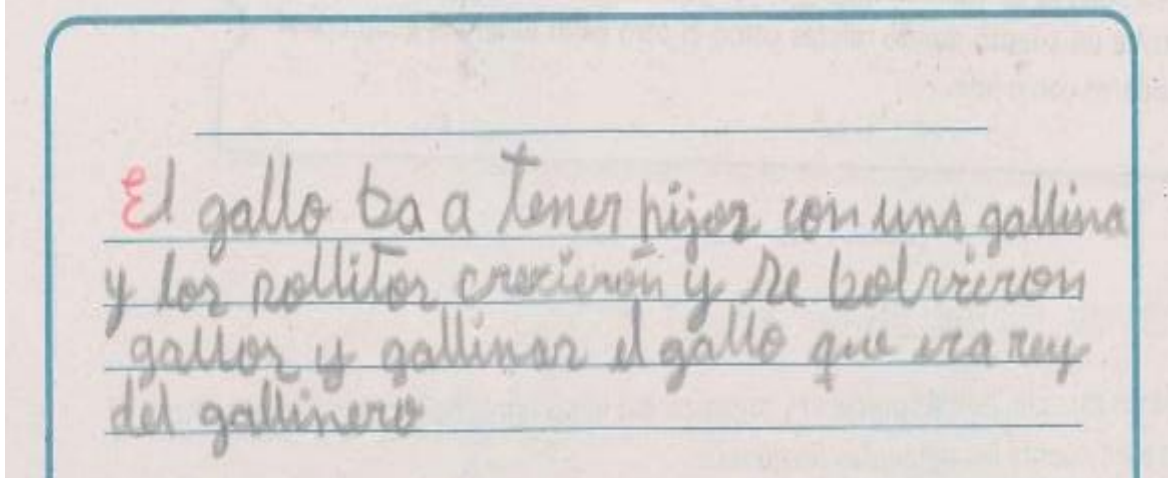 El gallo ba a tener hijos con una gallina
y los pollitos crecieron y se bolvieron
gallos y gallinas el gallo que era rey
del gallinero